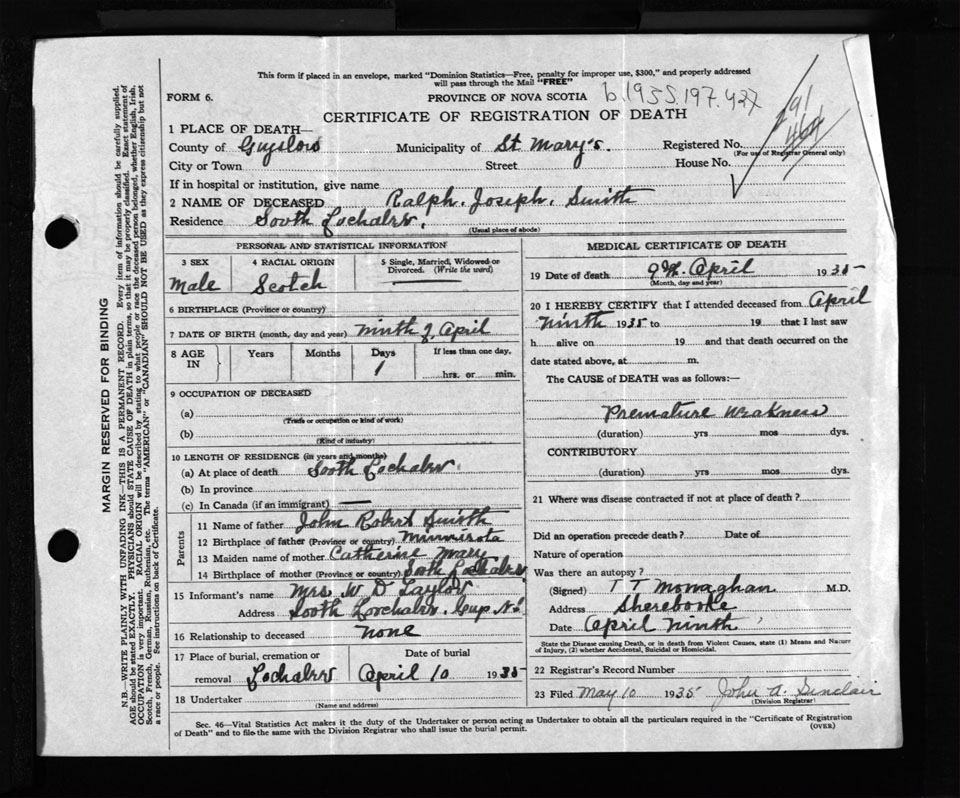 This form if placed in an envelope, marked "Dominion Statistics—Free, penalty for improper use, $300," and properly addressed
will pass through the Mail "FREE"
FORM 6.
PROVINCE OF NOVA SCOTIA
b.1935.197.427
CERTIFICATE OF REGISTRATION OF DEATH
291
464
1 PLACE OF DEATH—
County of Guysboro Municipality of St. Mary's. Registered No.
(For use of Registrar General only)
City or Town Street House No.
If in hospital or institution, give name
2 NAME OF DECEASED Ralph. Joseph. Smith
Residence Sooth Lochaber.
(Usual place of abode)
PERSONAL AND STATISTICAL INFORMATION
3 SEX 4 RACIAL ORIGIN 5 Single, Married, Widowed or Divorced. (Write the word)
Male Scotch
6 BIRTHPLACE (Province or country)
7 DATE OF BIRTH (month, day and year) ninth of April
8 AGE IN Years Months Days If less than one day,
1 hrs. or min.
9 OCCUPATION OF DECEASED
(a)
(Trade or occupation or kind of work)
(b)
(Kind of industry)
10 LENGTH OF RESIDENCE (in years and months)
(a) At place of death Sooth Lochaber.
(b) In province
(c) In Canada (if an immigrant) —
Parents
11 Name of father John Robert Smith
12 Birthplace of father (Province or country) Minnisota
13 Maiden name of mother Catherine Mary
14 Birthplace of mother (Province or country) Sooth Lochaber
15 Informant's name Mrs. W D Taylor
Address Sooth Lochaber. Guy. N.S
16 Relationship to deceased none
17 Place of burial, cremation or removal Lochaber Date of burial April 10 1935
18 Undertaker
(Name and address)
MEDICAL CERTIFICATE OF DEATH
19 Date of death 9th. April 1935
(Month, day and year)
20 I HEREBY CERTIFY that I attended deceased from April
Ninth 1935 to 19 that I last saw
h alive on 19 and that death occurred on the
date stated above, at m.
The CAUSE of DEATH was as follows:—
Premature weakness
(duration) yrs mos dys.
CONTRIBUTORY
(duration) yrs mos dys.
21 Where was disease contracted if not at place of death?
Did an operation precede death? Date of
Nature of operation
Was there an autopsy?
(Signed) T T Monaghan M.D.
Address Sherebooke
Date April Ninth
State the Disease causing Death, or in death from Violent Causes, state (1) Means and Nature
of Injury, (2) whether Accidental, Suicidal or Homicidal.
22 Registrar's Record Number
23 Filed May 10 1935 John A. Sinclair
(Division Registrar)
Sec. 46—Vital Statistics Act makes it the duty of the Undertaker or person acting as Undertaker to obtain all the particulars required in the "Certificate of Registration
of Death" and to file the same with the Division Registrar who shall issue the burial permit.
(OVER)
MARGIN RESERVED FOR BINDING
N.B.—WRITE PLAINLY WITH UNFADING INK—THIS IS A PERMANENT RECORD. Every item of information should be carefully supplied.
AGE should be stated EXACTLY. PHYSICIANS should STATE CAUSE OF DEATH in plain terms, so that it may be properly classified. Exact statement of
OCCUPATION is very important. RACIAL ORIGIN will be described by stating to what people or race the deceased person belonged, whether English, Irish,
Scotch, French, German, Russian, Ruthenian, etc. The terms "AMERICAN" or "CANADIAN" SHOULD NOT BE USED as they express citizenship but not
a race or people. See instructions on back of Certificate.